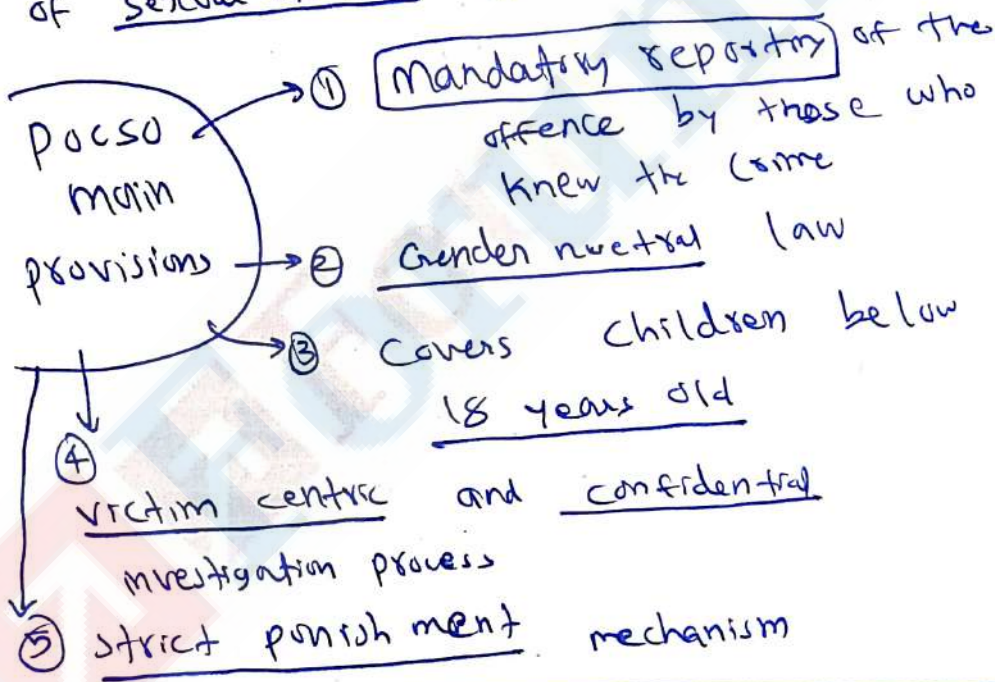 of
POCSO
main
provisions
① Mandatory reporting of the
offence by those who
knew the crime
② Gender nuetral law
③ Covers children below
18 years old
④
victim centric and confidential
investigation process
⑤ strict punishment mechanism